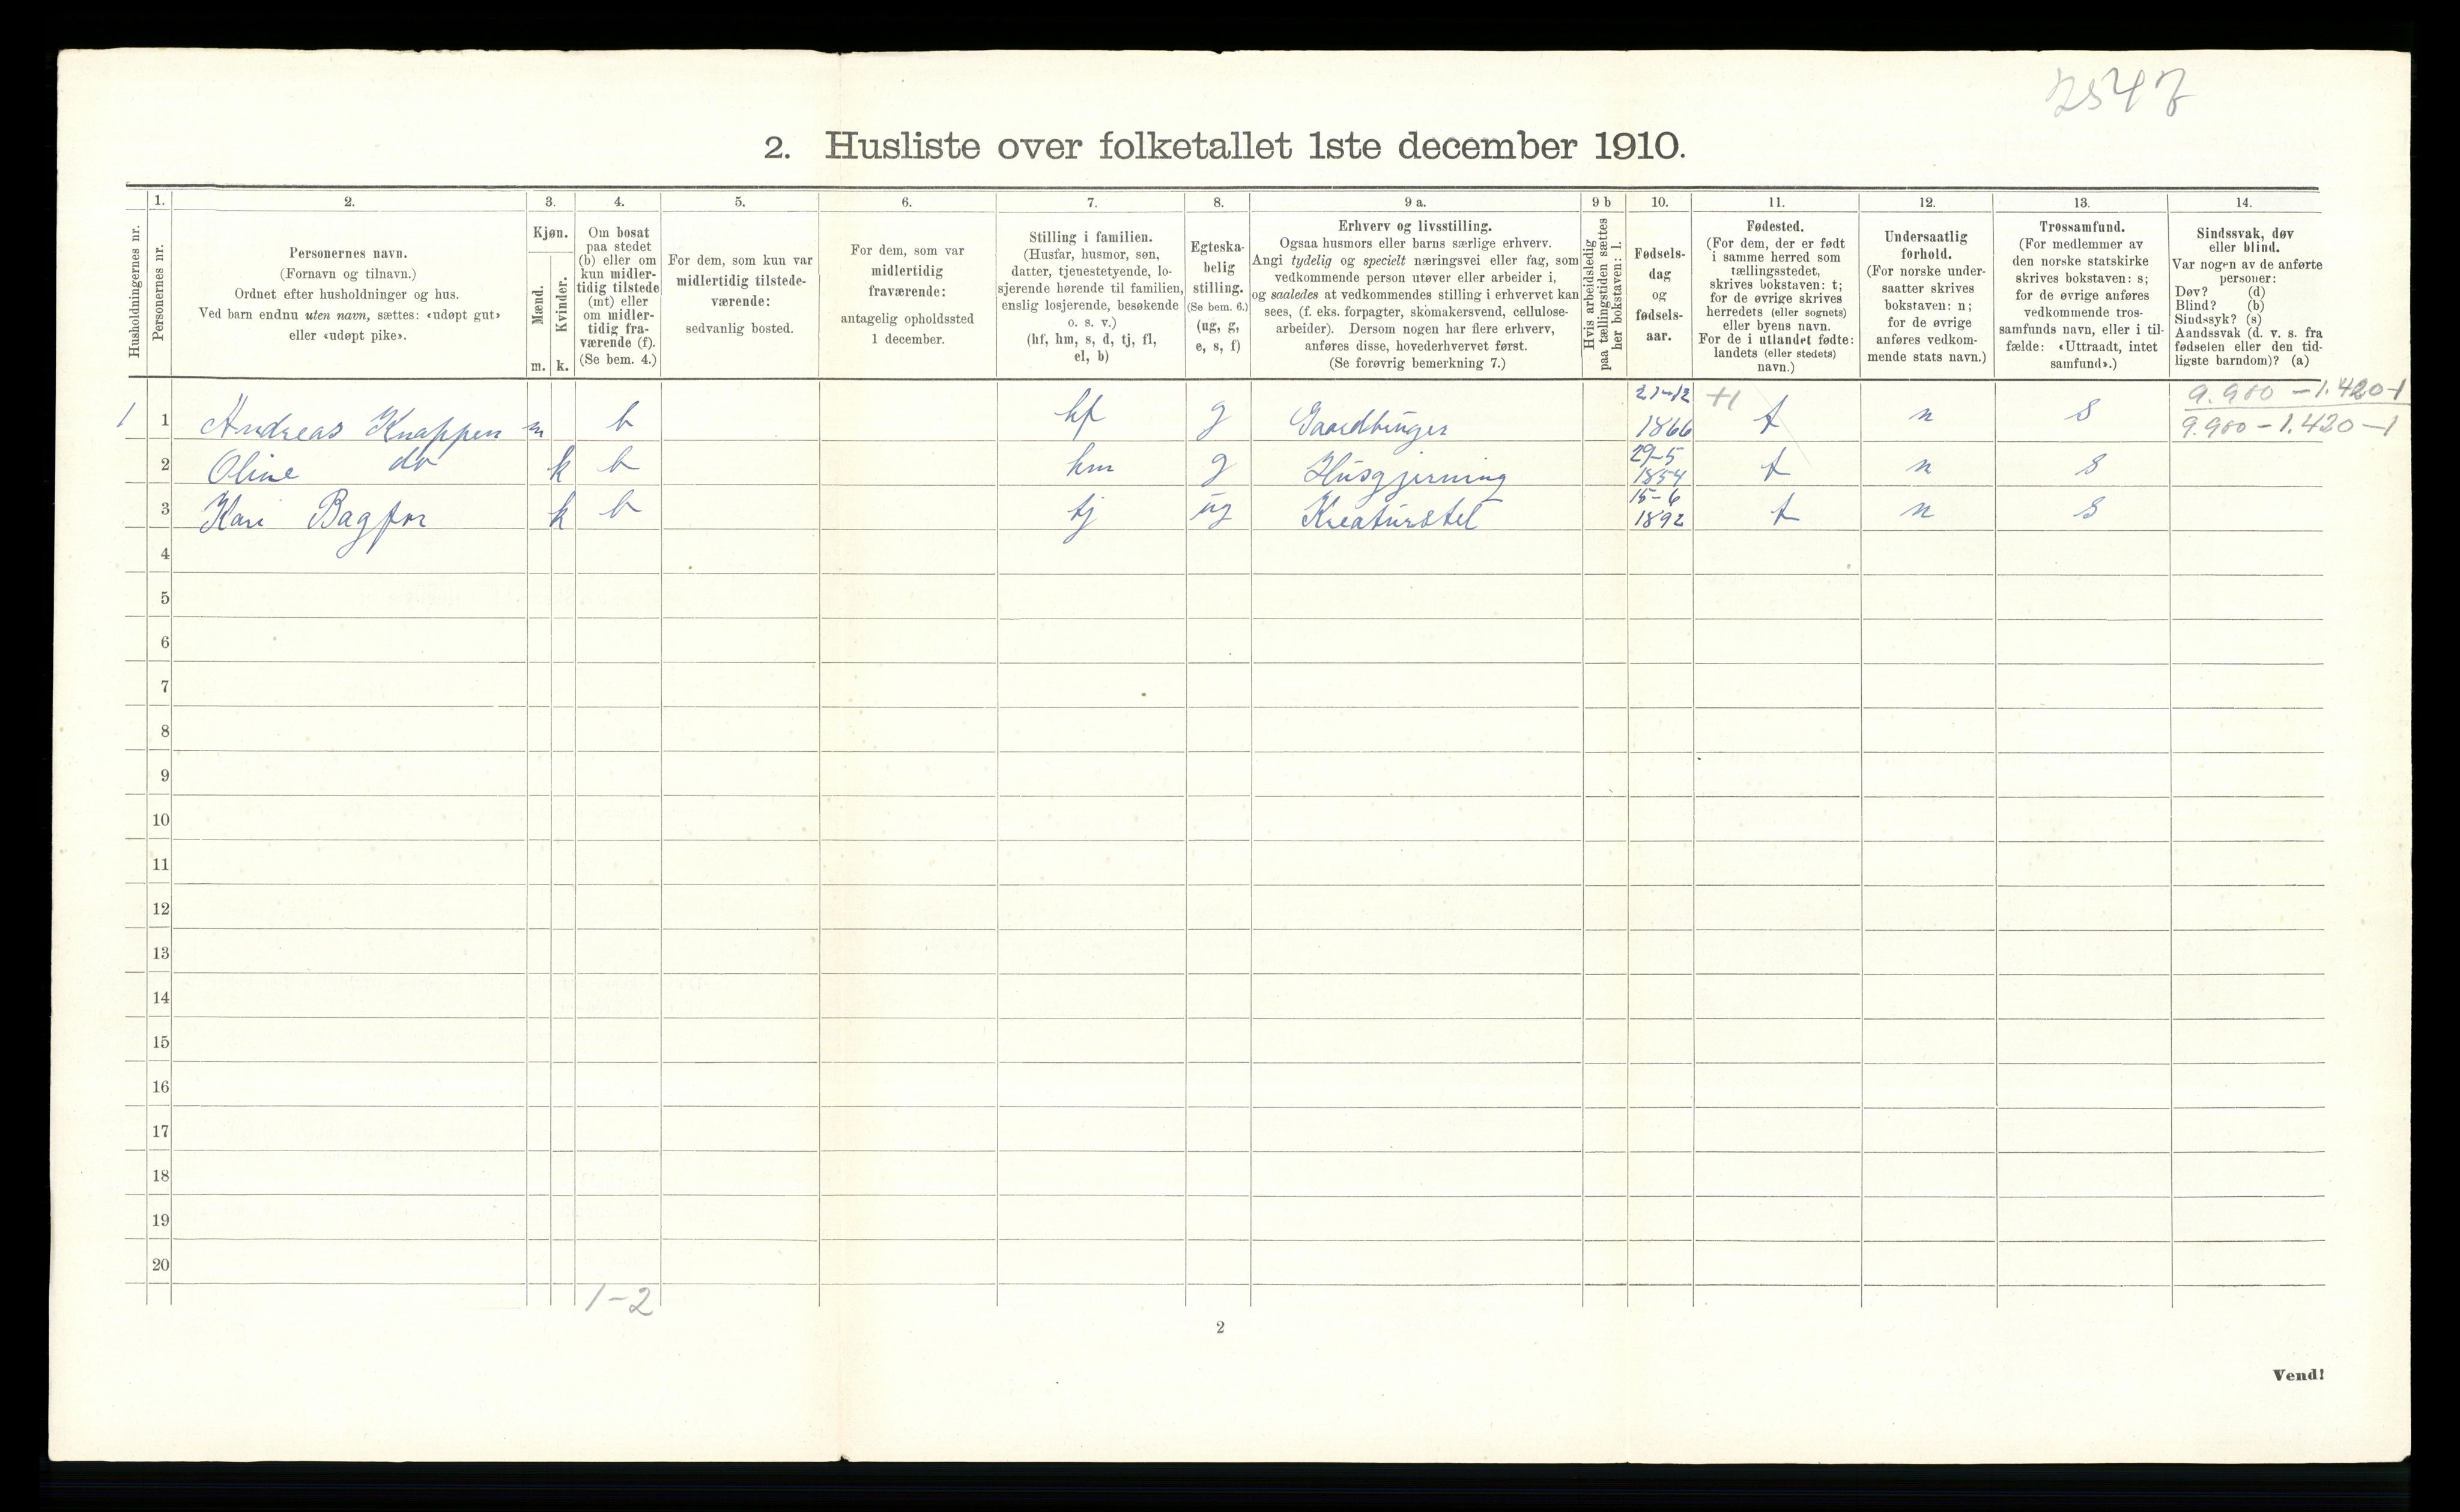 2547
2. Husliste over folketallet 1ste december 1910.
Husholdningernes nr.
1.
Personernes nr.
2.
Personernes navn.
(Fornavn og tilnavn.)
Ordnet efter husholdninger og hus.
Ved barn endnu uten navn, sættes: «udøpt gut»
eller «udøpt pike».
3.
Kjøn.
Mænd.
Kvinder.
m. k.
4.
Om bosat
paa stedet
(b) eller om
kun midler-
tidig tilstede
(mt) eller
om midler-
tidig fra-
værende (f).
(Se bem. 4.)
5.
For dem, som kun var
midlertidig tilstede-
værende:
sedvanlig bosted.
6.
For dem, som var
midlertidig
fraværende:
antagelig opholdssted
1 december.
7.
Stilling i familien.
(Husfar, husmor, søn,
datter, tjenestetyende, lo-
sjerende hørende til familien,
enslig losjerende, besøkende
o. s. v.)
(hf, hm, s, d, tj, fl,
el, b)
8.
Egteska-
belig
stilling.
(Se bem. 6.)
(ug, g,
e, s, f)
9 a.
Erhverv og livsstilling.
Ogsaa husmors eller barns særlige erhverv.
Angi tydelig og specielt næringsvei eller fag, som
vedkommende person utøver eller arbeider i,
og saaledes at vedkommendes stilling i erhvervet kan
sees, (f. eks. forpagter, skomakersvend, cellulose-
arbeider). Dersom nogen har flere erhverv,
anføres disse, hovederhvervet først.
(Se forøvrig bemerkning 7.)
9 b
Hvis arbeidsledig
paa tællingstiden sættes
her bokstaven: l.
10.
Fødsels-
dag
og
fødsels-
aar.
11.
Fødested.
(For dem, der er født
i samme herred som
tællingsstedet,
skrives bokstaven: t;
for de øvrige skrives
herredets (eller sognets)
eller byens navn.
For de i utlandet fødte:
landets (eller stedets)
navn.)
12.
Undersaatlig
forhold.
(For norske under-
saatter skrives
bokstaven: n;
for de øvrige
anføres vedkom-
mende stats navn.)
13.
Trossamfund.
(For medlemmer av
den norske statskirke
skrives bokstaven: s;
for de øvrige anføres
vedkommende tros-
samfunds navn, eller i til-
fælde: «Uttraadt, intet
samfund».)
14.
Sindssvak, døv
eller blind.
Var nogen av de anførte
personer:
Døv? (d)
Blind? (b)
Sindssyk? (s)
Aandssvak (d. v. s. fra
fødselen eller den tid-
ligste barndom)? (a)
9.900 - 1.420-1
1 1 Andreas Knappen m b hf g Gaardbruger 21-12 1866 +1 t n s 9.900 - 1.420-1
2 Oline do k b hm g Husgjerning 29-5 1854 t n s
3 Kari Bagfor k b tj ug Kreaturstel 15-6 1892 t n s
4
5
6
7
8
9
10
11
12
13
14
15
16
17
18
19
20
1-2
2
Vend!